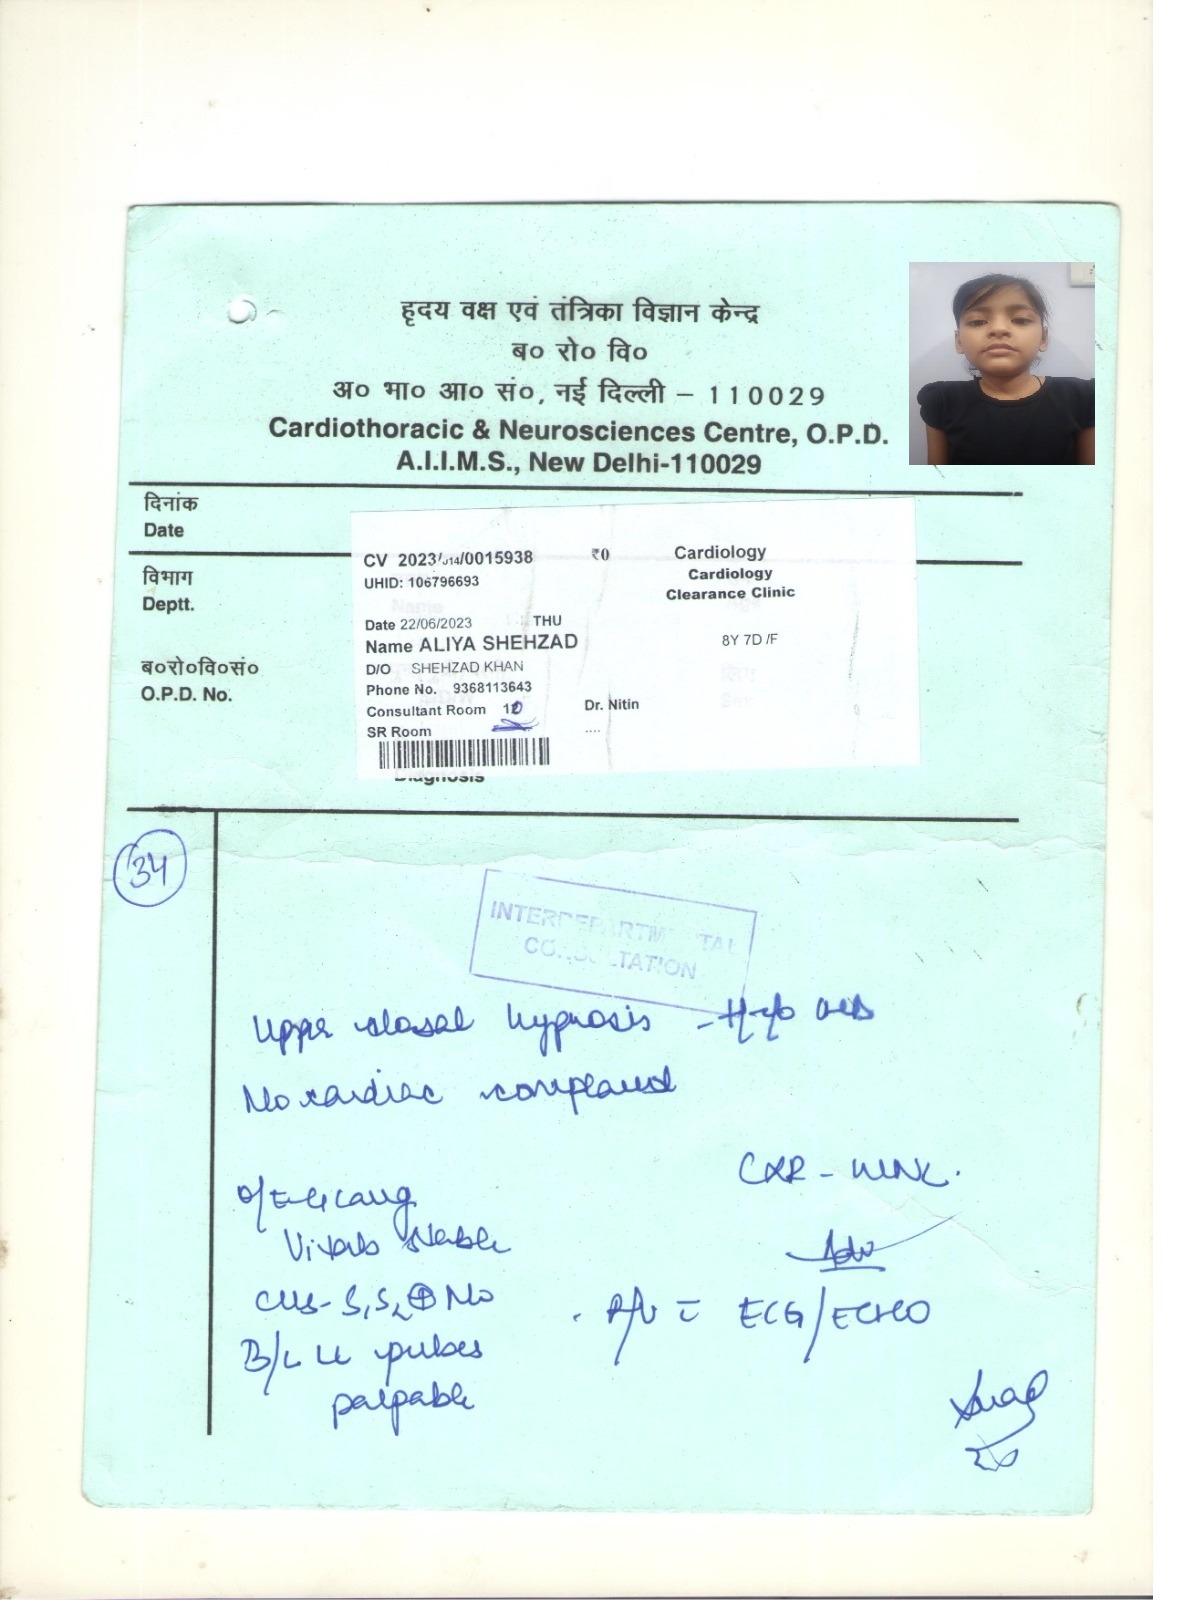 हृदय वक्ष एवं तंत्रिका विज्ञान केन्द्र
ब० रो० वि०
अ० भा० आ० सं०, नई दिल्ली – 110029
Cardiothoracic & Neurosciences Centre, O.P.D.
A.I.I.M.S., New Delhi-110029
दिनांक
Date
विभाग
Deptt.
ब०रो०वि०सं०
O.P.D. No.
CV 2023/014/0015938 ₹0 Cardiology
UHID: 106796693 Cardiology
Clearance Clinic
Date 22/06/2023 THU
Name ALIYA SHEHZAD 8Y 7D /F
D/O SHEHZAD KHAN
Phone No. 9368113643
Consultant Room Dr. Nitin
SR Room ....
Diagnosis
34
INTERDEPARTMENTAL
CONSULTATION
Upper dorsal kyphosis -
No cardiac
CXR - WNL.
O/E
Vitals stable
Adv
CVS - S1S2 ⊕ No
B/L UL pulses
palpable
ECG/ECHO